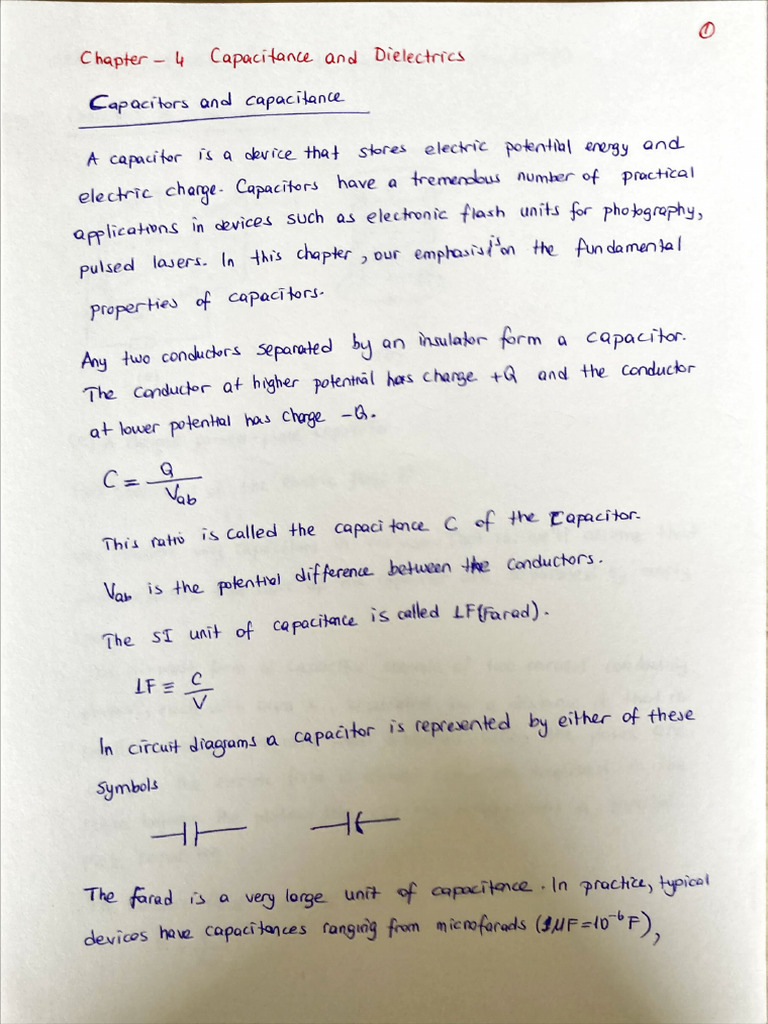 ①
Chapter - 4 Capacitance and Dielectrics
Capacitors and capacitance
A capacitor is a device that stores electric potential energy and
electric charge. Capacitors have a tremendous number of practical
applications in devices such as electronic flash units for photography,
pulsed lasers. In this chapter, our emphasis is on the fundamental
properties of capacitors.
Any two conductors separated by an insulator form a capacitor.
The conductor at higher potential has charge +Q and the conductor
at lower potential has charge -Q.
C = Q / Vab
This ratio is called the capacitance C of the capacitor.
Vab is the potential difference between the conductors.
The SI unit of capacitance is called 1F(Farad).
1F ≡ C / V
In circuit diagrams a capacitor is represented by either of these
symbols
The farad is a very large unit of capacitance. In practice, typical
devices have capacitances ranging from microfarads (1μF=10⁻⁶F),